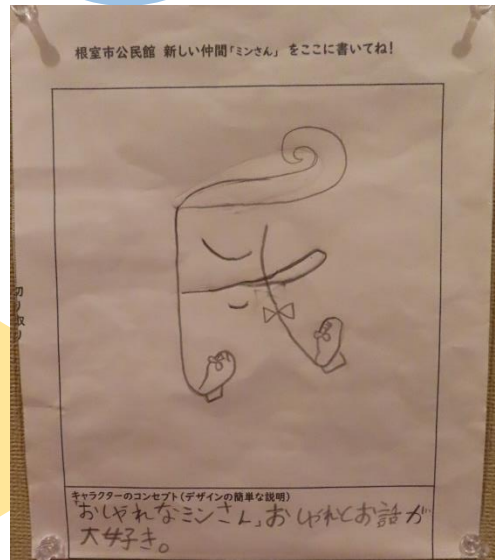 根室市公民館 新しい仲間「ミンさん」 をここに書いてね!
切り取り
キャラクターのコンセプト(デザインの簡単な説明)
「おしゃれなミンさん」おしゃれとお話が
大好き。